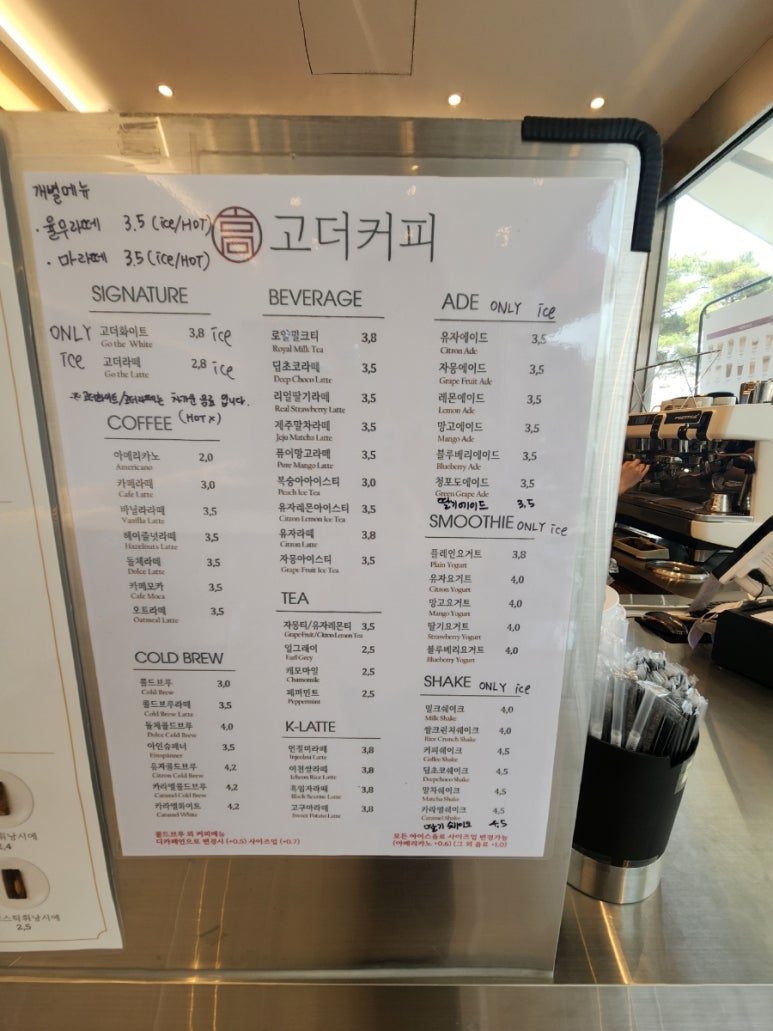 개별메뉴
· 율무라떼 3.5 (ice/HOT)
· 마라떼 3.5 (ice/HOT)
高 고더커피
SIGNATURE
ONLY ice
고더화이트 3,8 ice
Go the White
고더라떼 2,8 ice
Go the Latte
※고더화이트/고더라떼는 차가운 음료 입니다.
(HOT X)
COFFEE
아메리카노 2,0
Americano
카페라떼 3,0
Cafe Latte
바닐라라떼 3,5
Vanilla Latte
헤이즐넛라떼 3,5
Hazelnuts Latte
돌체라떼 3,5
Dolce Latte
카페모카 3,5
Cafe Moca
오트라떼 3,5
Oatmeal Latte
COLD BREW
콜드브루 3,0
Cold Brew
콜드브루라떼 3,5
Cold Brew Latte
돌체콜드브루 4,0
Dolce Cold Brew
아인슈페너 3,5
Einspänner
유자콜드브루 4,2
Citron Cold Brew
카라멜콜드브루 4,2
Caramel Cold Brew
카라멜화이트 4,2
Caramel White
콜드브루 외 커피메뉴
디카페인으로 변경시 (+0.5) 사이즈업 (+0.7)
BEVERAGE
로얄밀크티 3,8
Royal Milk Tea
딥초코라떼 3,5
Deep Choco Latte
리얼딸기라떼 3,5
Real Strawberry Latte
제주말차라떼 3,5
Jeju Matcha Latte
퓨어망고라떼 3,5
Pure Mango Latte
복숭아아이스티 3,0
Peach Ice Tea
유자레몬아이스티 3,5
Citron Lemon Ice Tea
유자라떼 3,8
Citron Latte
자몽아이스티 3,5
Grape Fruit Ice Tea
TEA
자몽티/유자레몬티 3,5
Grape Fruit/Citron Lemon Tea
얼그레이 2,5
Earl Grey
캐모마일 2,5
Chamomile
페퍼민트 2,5
Peppermint
K-LATTE
인절미라떼 3,8
Injeolmi Latte
이천쌀라떼 3,8
Icheon Rice Latte
흑임자라떼 3,8
Black Sesame Latte
고구마라떼 3,8
Sweet Potato Latte
ADE ONLY ice
유자에이드 3,5
Citron Ade
자몽에이드 3,5
Grape Fruit Ade
레몬에이드 3,5
Lemon Ade
망고에이드 3,5
Mango Ade
블루베리에이드 3,5
Blueberry Ade
청포도에이드 3,5
Green Grape Ade
딸기에이드 3.5
SMOOTHIE ONLY ice
플레인요거트 3,8
Plain Yogurt
유자요거트 4,0
Citron Yogurt
망고요거트 4,0
Mango Yogurt
딸기요거트 4,0
Strawberry Yogurt
블루베리요거트 4,0
Blueberry Yogurt
SHAKE ONLY ice
밀크쉐이크 4,0
Milk Shake
쌀크런치쉐이크 4,0
Rice Crunch Shake
커피쉐이크 4,5
Coffee Shake
딥초코쉐이크 4,5
Deepchoco Shake
말차쉐이크 4,5
Matcha Shake
카라멜쉐이크 4,5
Caramel Shake
딸기 쉐이크 4.5
모든 아이스음료 사이즈업 변경가능
(아메리카노 +0.6) (그 외 음료 +1.0)
휘낭시에
2,5